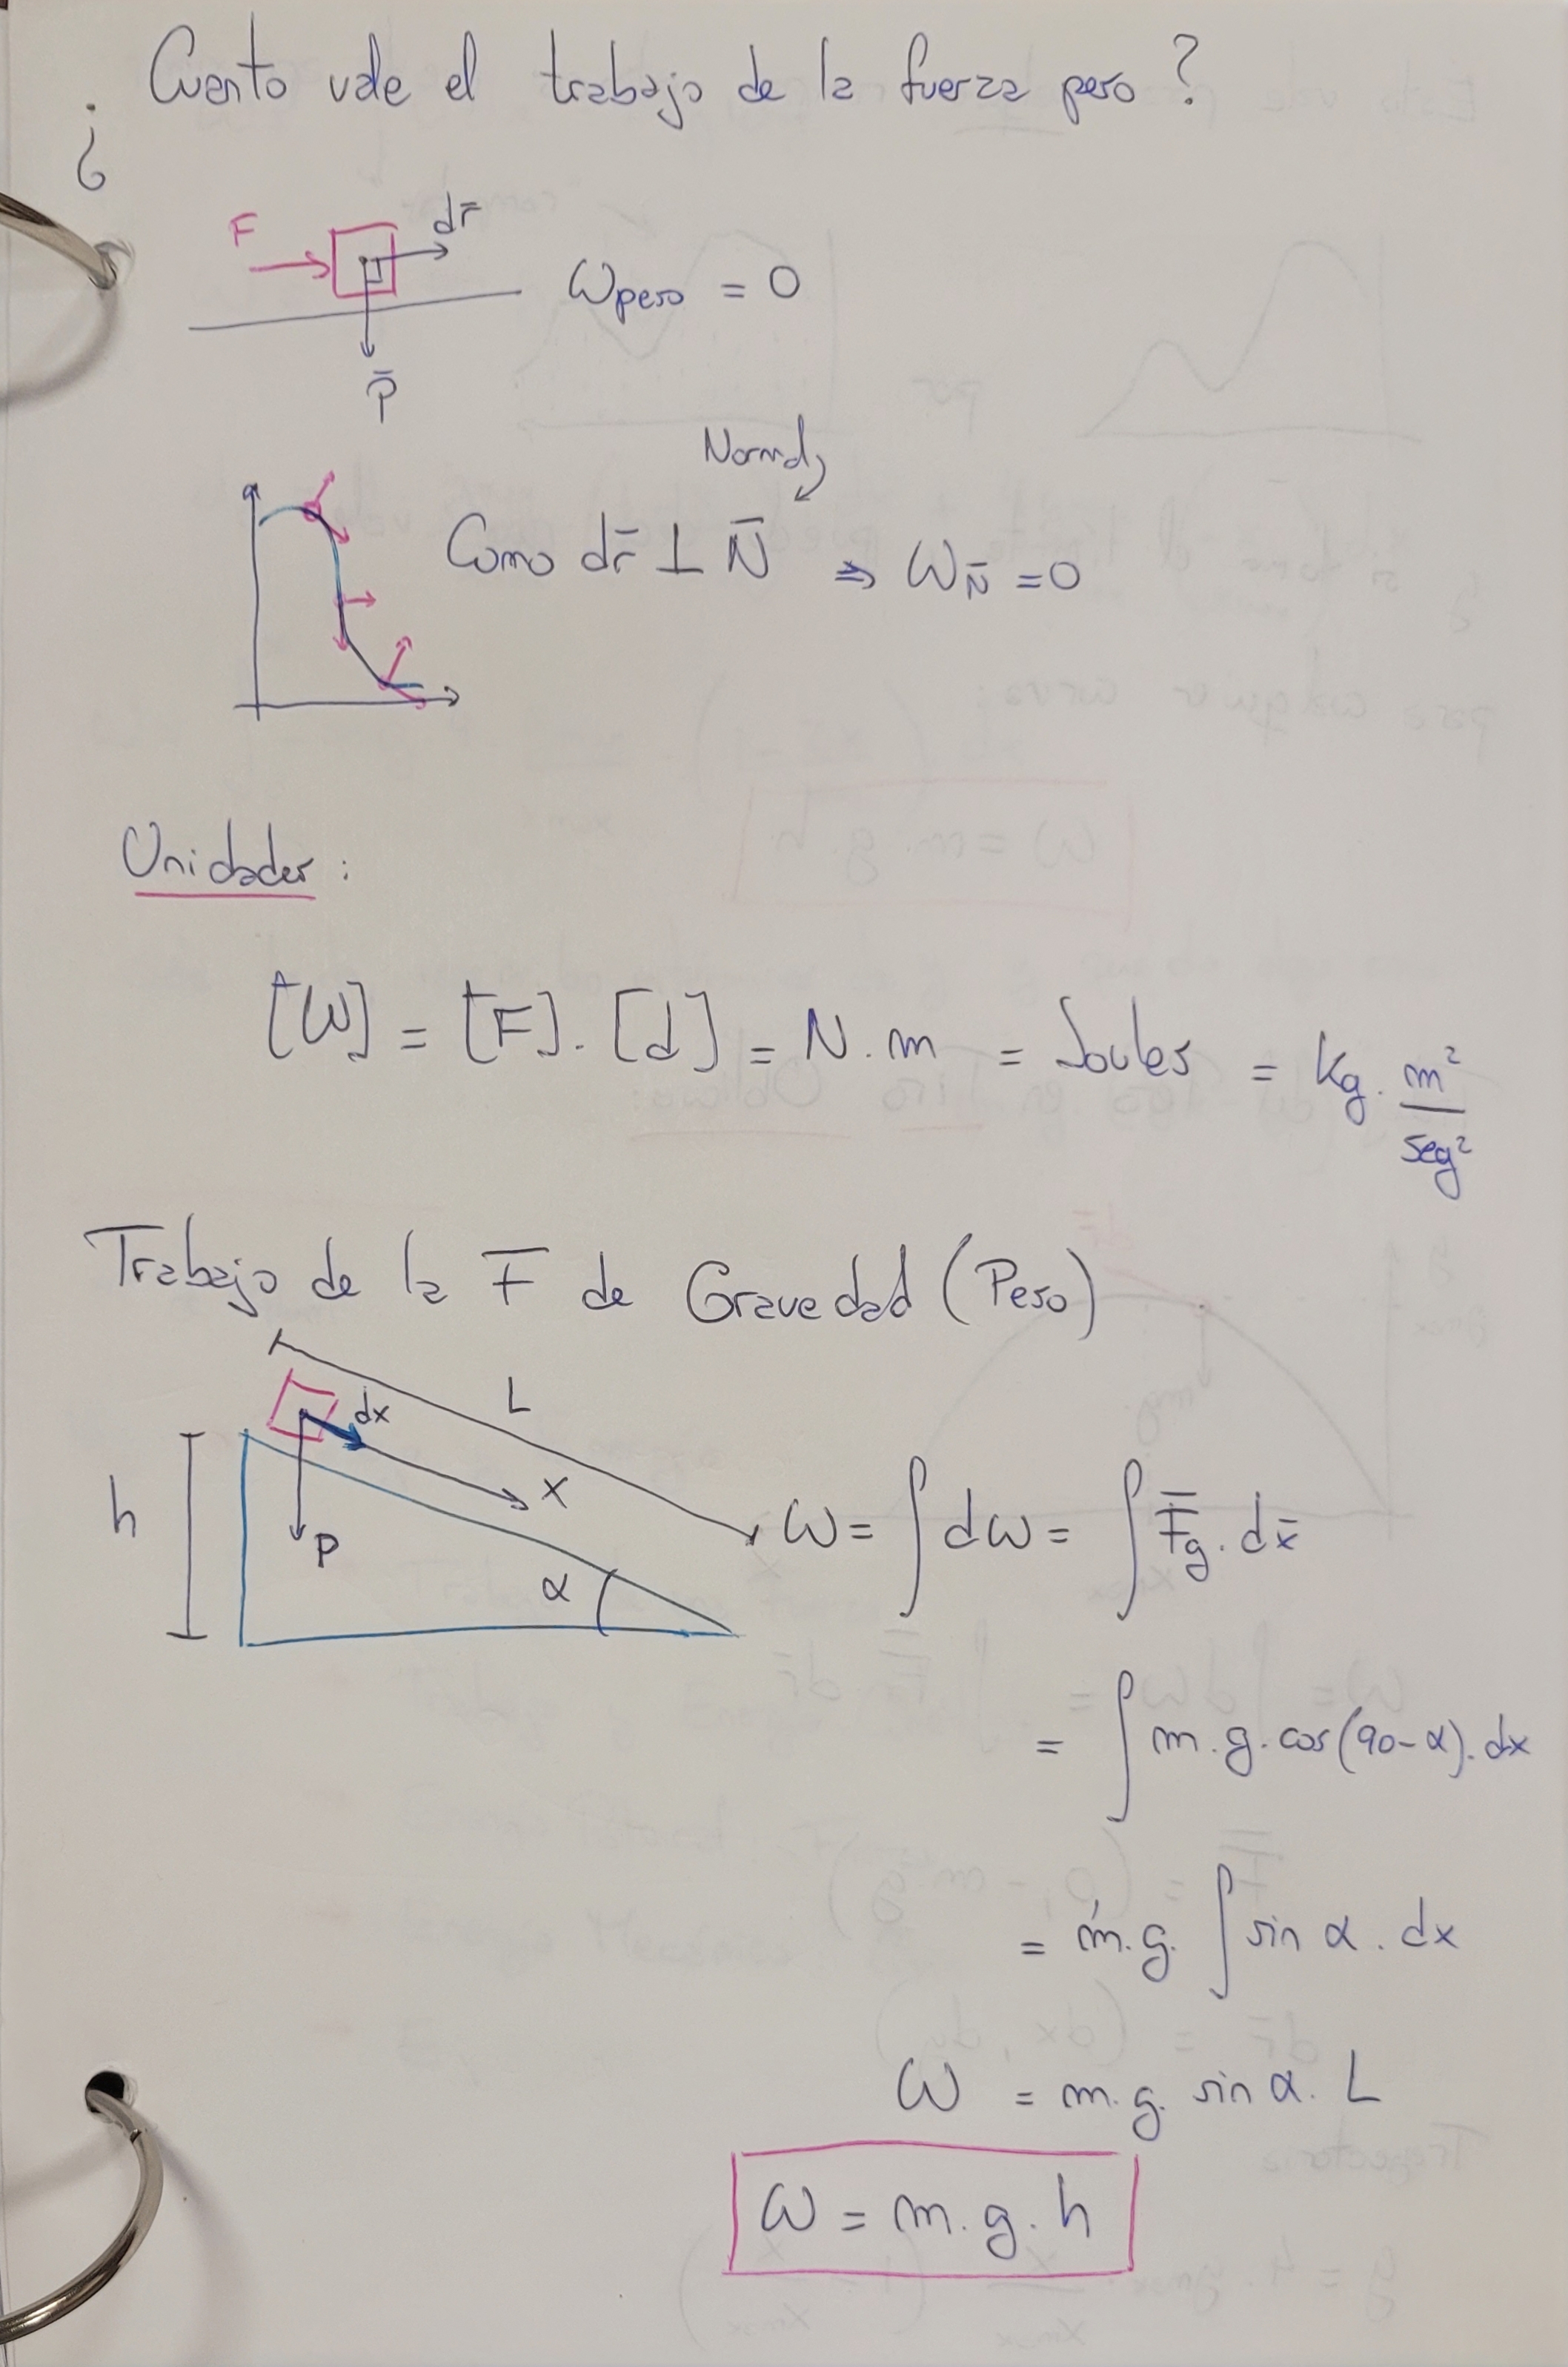 ¿Cuanto vale el trabajo de la fuerza peso?
F
dr̄
P̄
ω_peso = 0
Normal
Como dr̄ ⊥ N̄ ⇒ ω_N̄ = 0
Unidades:
[W] = [F] . [d] = N . m = Joules = Kg . m²/seg²
Trabajo de la F̄ de Gravedad (Peso)
L
dx
x
h
P
α
ω = ∫ dω = ∫ F̄g . dx̄
= ∫ m . g . cos(90 - α) . dx
= m . g . ∫ sin α . dx
ω = m . g . sin α . L
ω = m . g . h